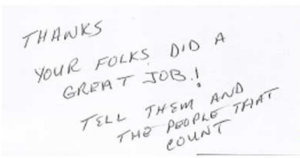 THANKS
YOUR FOLKS DID A
GREAT JOB.!
TELL THEM AND
THE PEOPLE THAT
COUNT